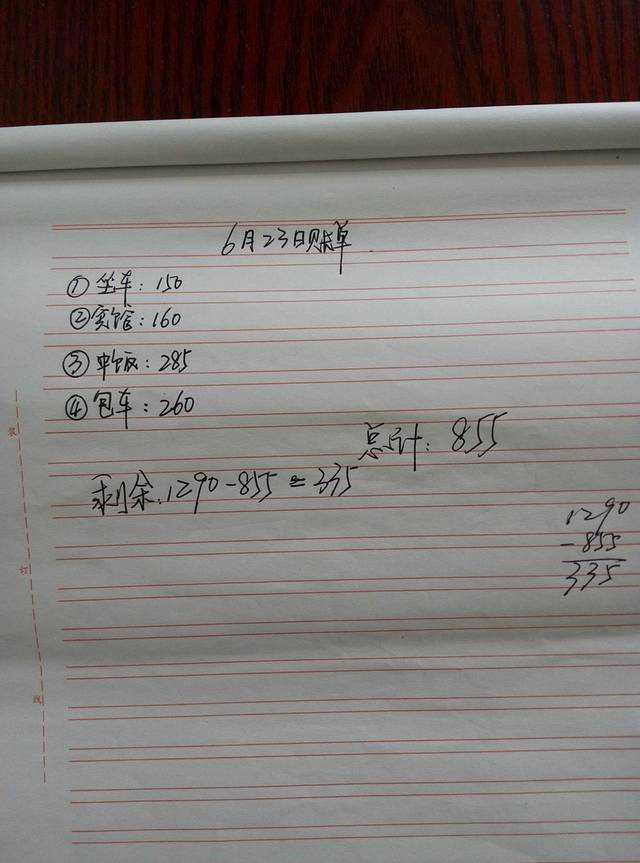 6月23日账单
①坐车：150
②宾馆：160
③中饭：285
④包车：260
总计：855
剩余：1290-855=335
1290
-855
335
装
订
线